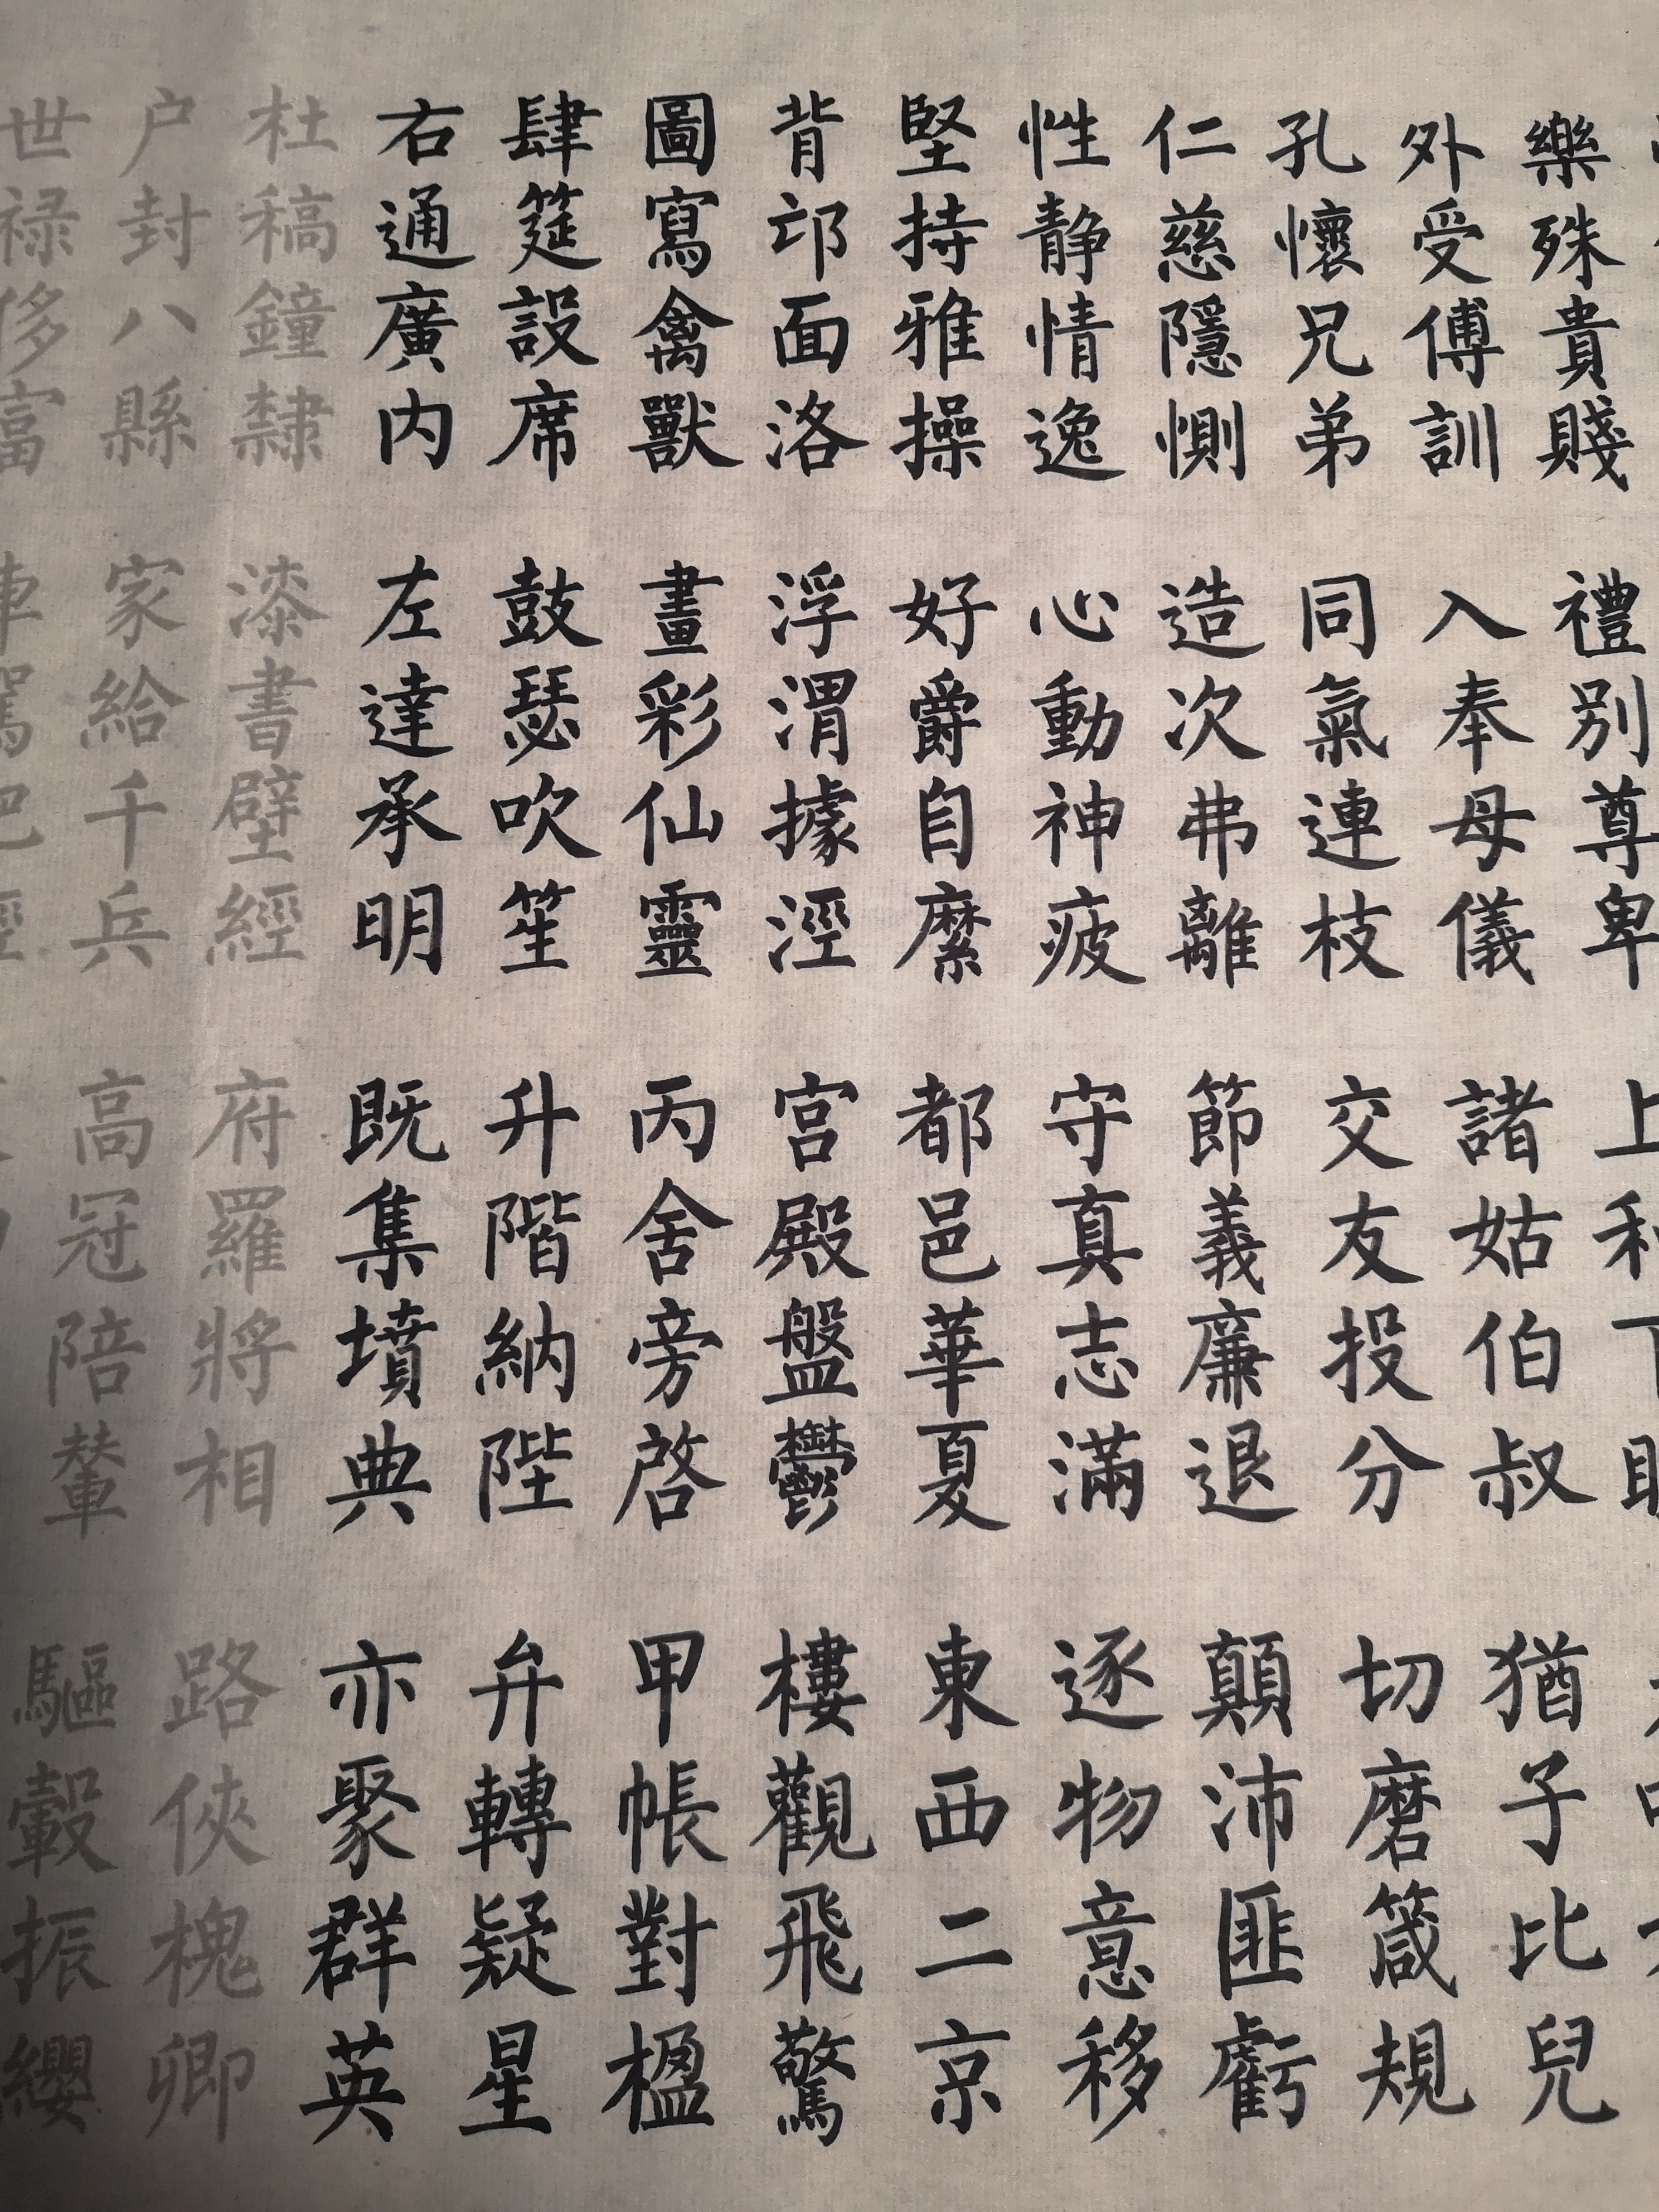 樂殊貴賤 禮別尊卑 上和下
外受傅訓 入奉母儀 諸姑伯叔 猶子比兒
孔懷兄弟 同氣連枝 交友投分 切磨箴規
仁慈隱惻 造次弗離 節義廉退 顛沛匪虧
性静情逸 心動神疲 守真志滿 逐物意移
堅持雅操 好爵自縻 都邑華夏 東西二京
背邙面洛 浮渭據涇 宮殿盤鬱 樓觀飛驚
圖寫禽獸 畫彩仙靈 丙舍旁啓 甲帳對楹
肆筵設席 鼓瑟吹笙 升階納陛 弁轉疑星
右通廣内 左達承明 既集墳典 亦聚群英
杜稿鐘隸 漆書壁經 府羅將相 路俠槐卿
户封八縣 家給千兵 高冠陪輦 驅轂振纓
世禄侈富 車駕肥輕